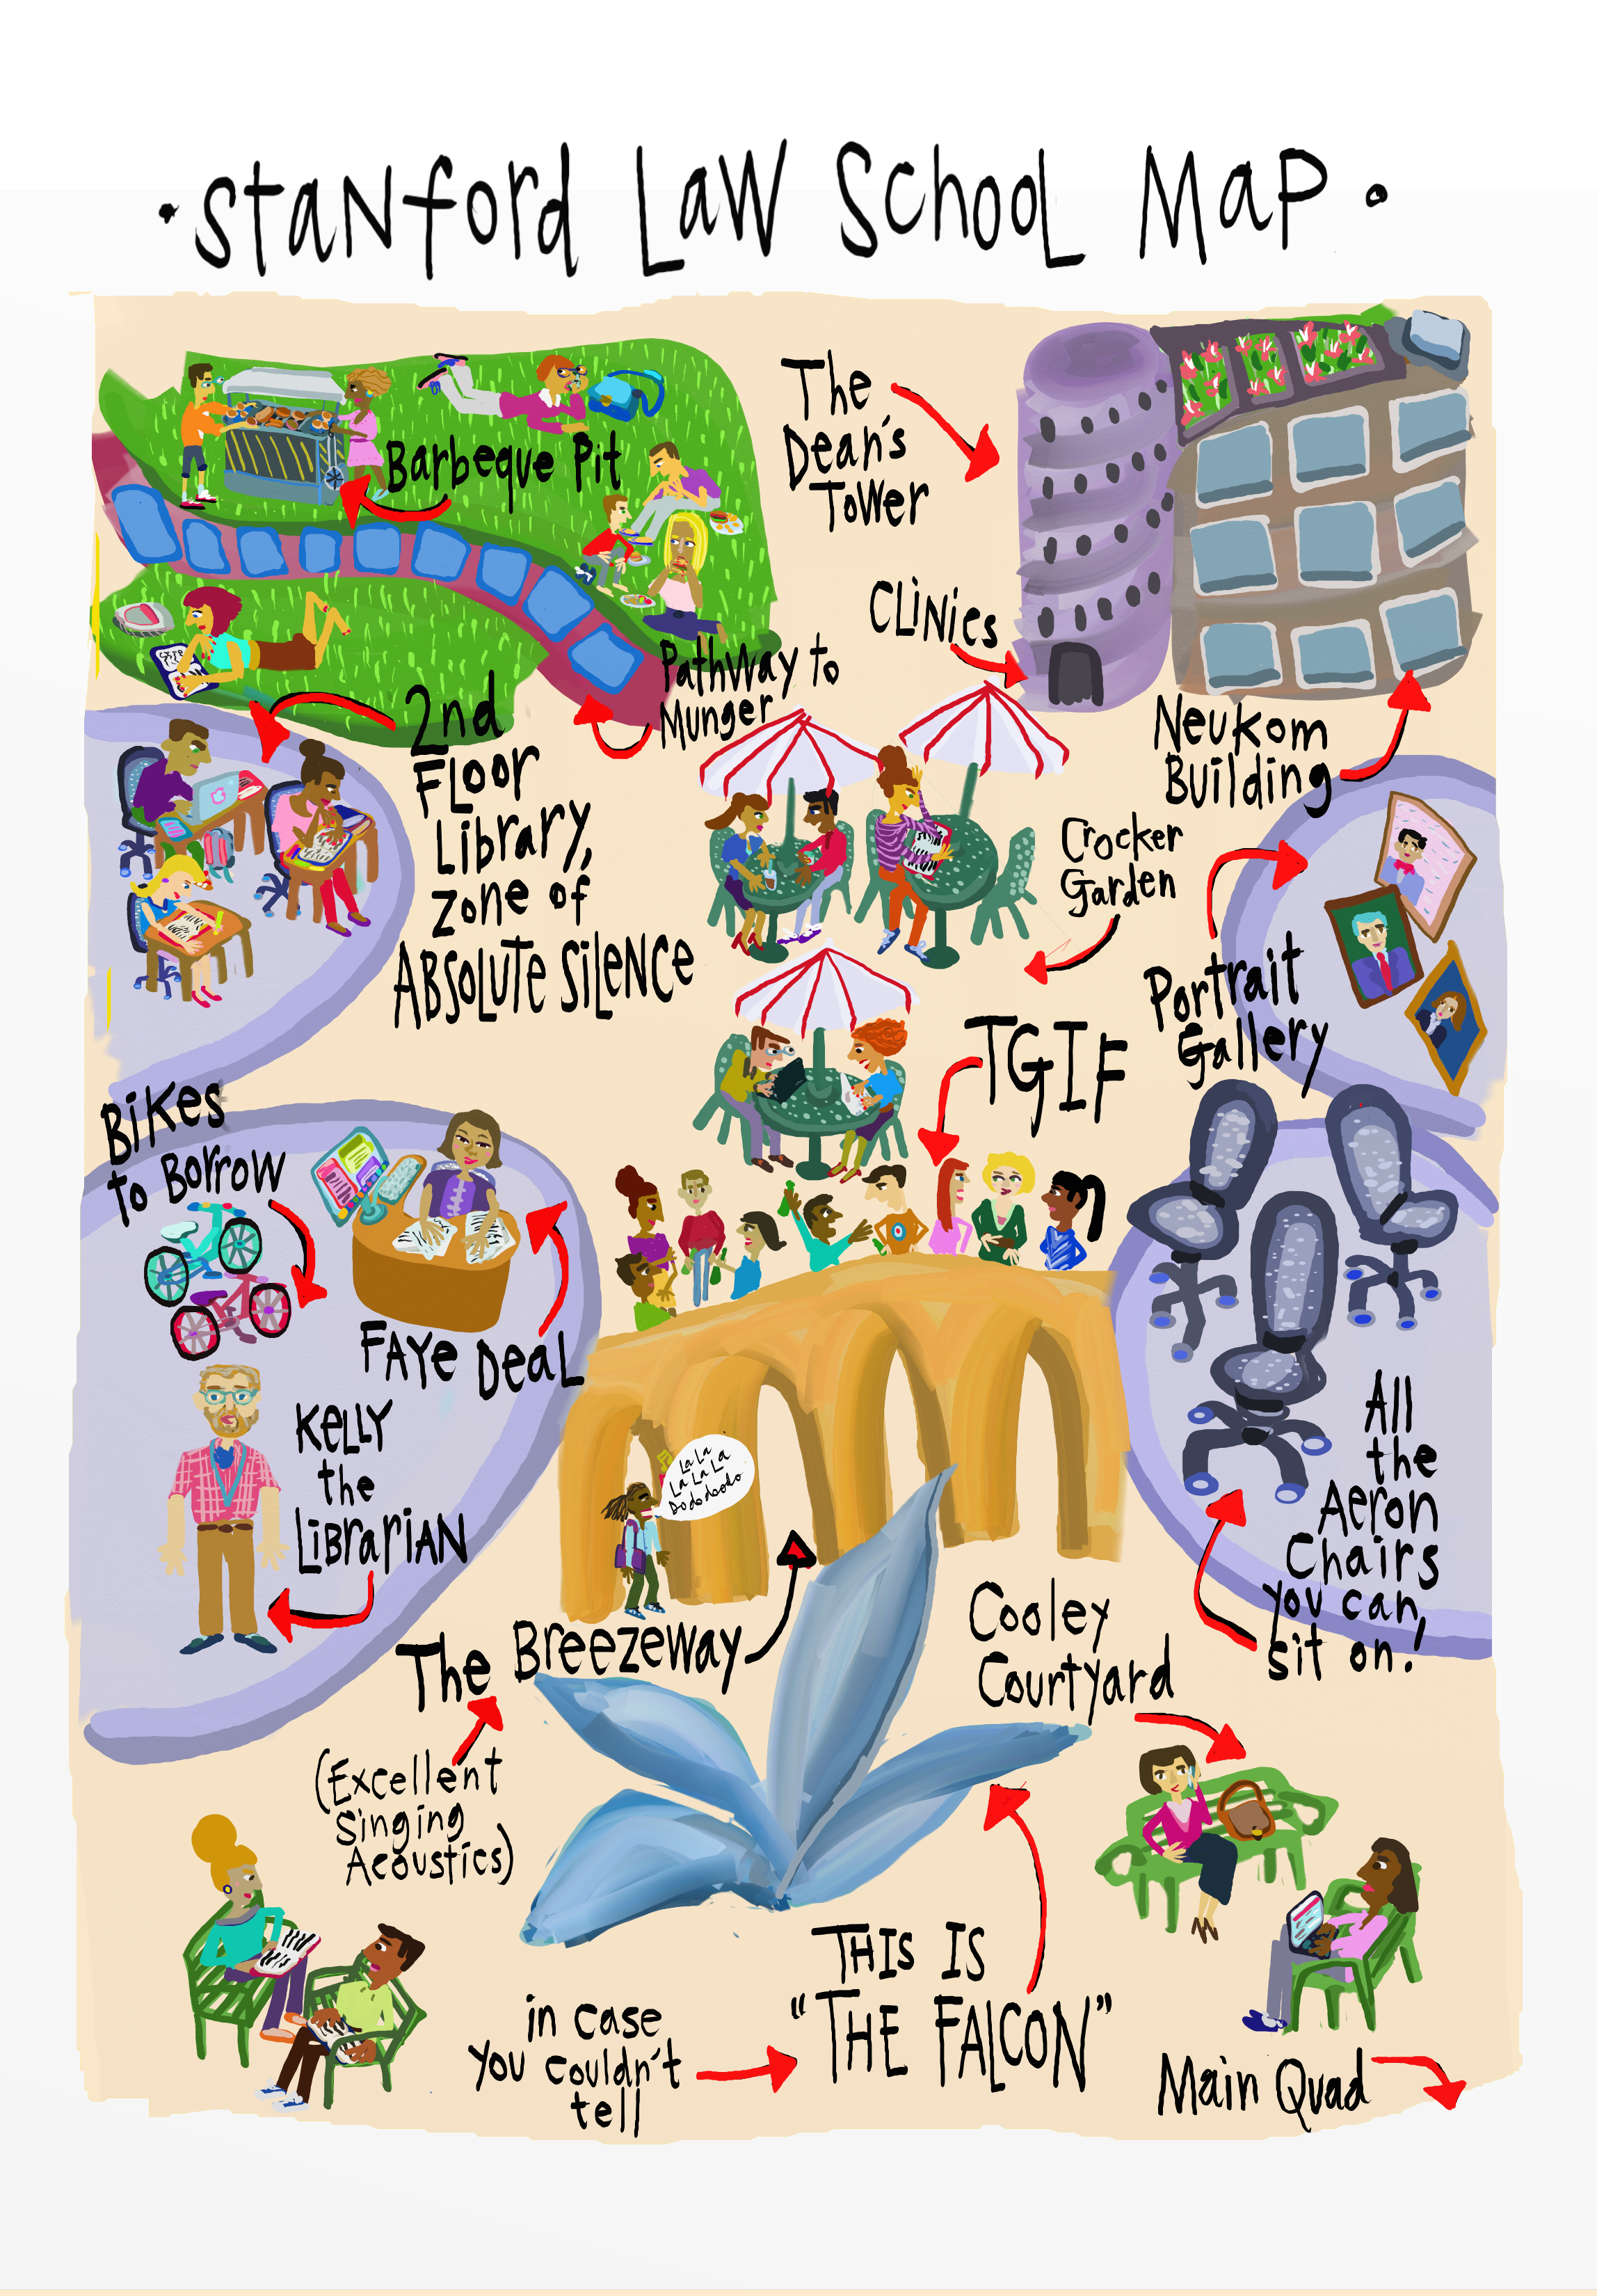 · Stanford Law School Map ·
Barbeque Pit
The
Dean's
Tower
Clinics
Pathway to
Munger
2nd
Floor
Library,
zone of
ABSOLUTE SILENCE
Neukom
Building
Crocker
Garden
Portrait
Gallery
TGIF
Bikes
to Borrow
Faye Deal
Kelly
the
Librarian
La La
La La La
Dododoodo
All
the
Aeron
Chairs
you can,
sit on!
The Breezeway
(Excellent
Singing
Acoustics)
Cooley
Courtyard
in case
you couldn't
tell
THIS IS
"THE FALCON"
Main Quad